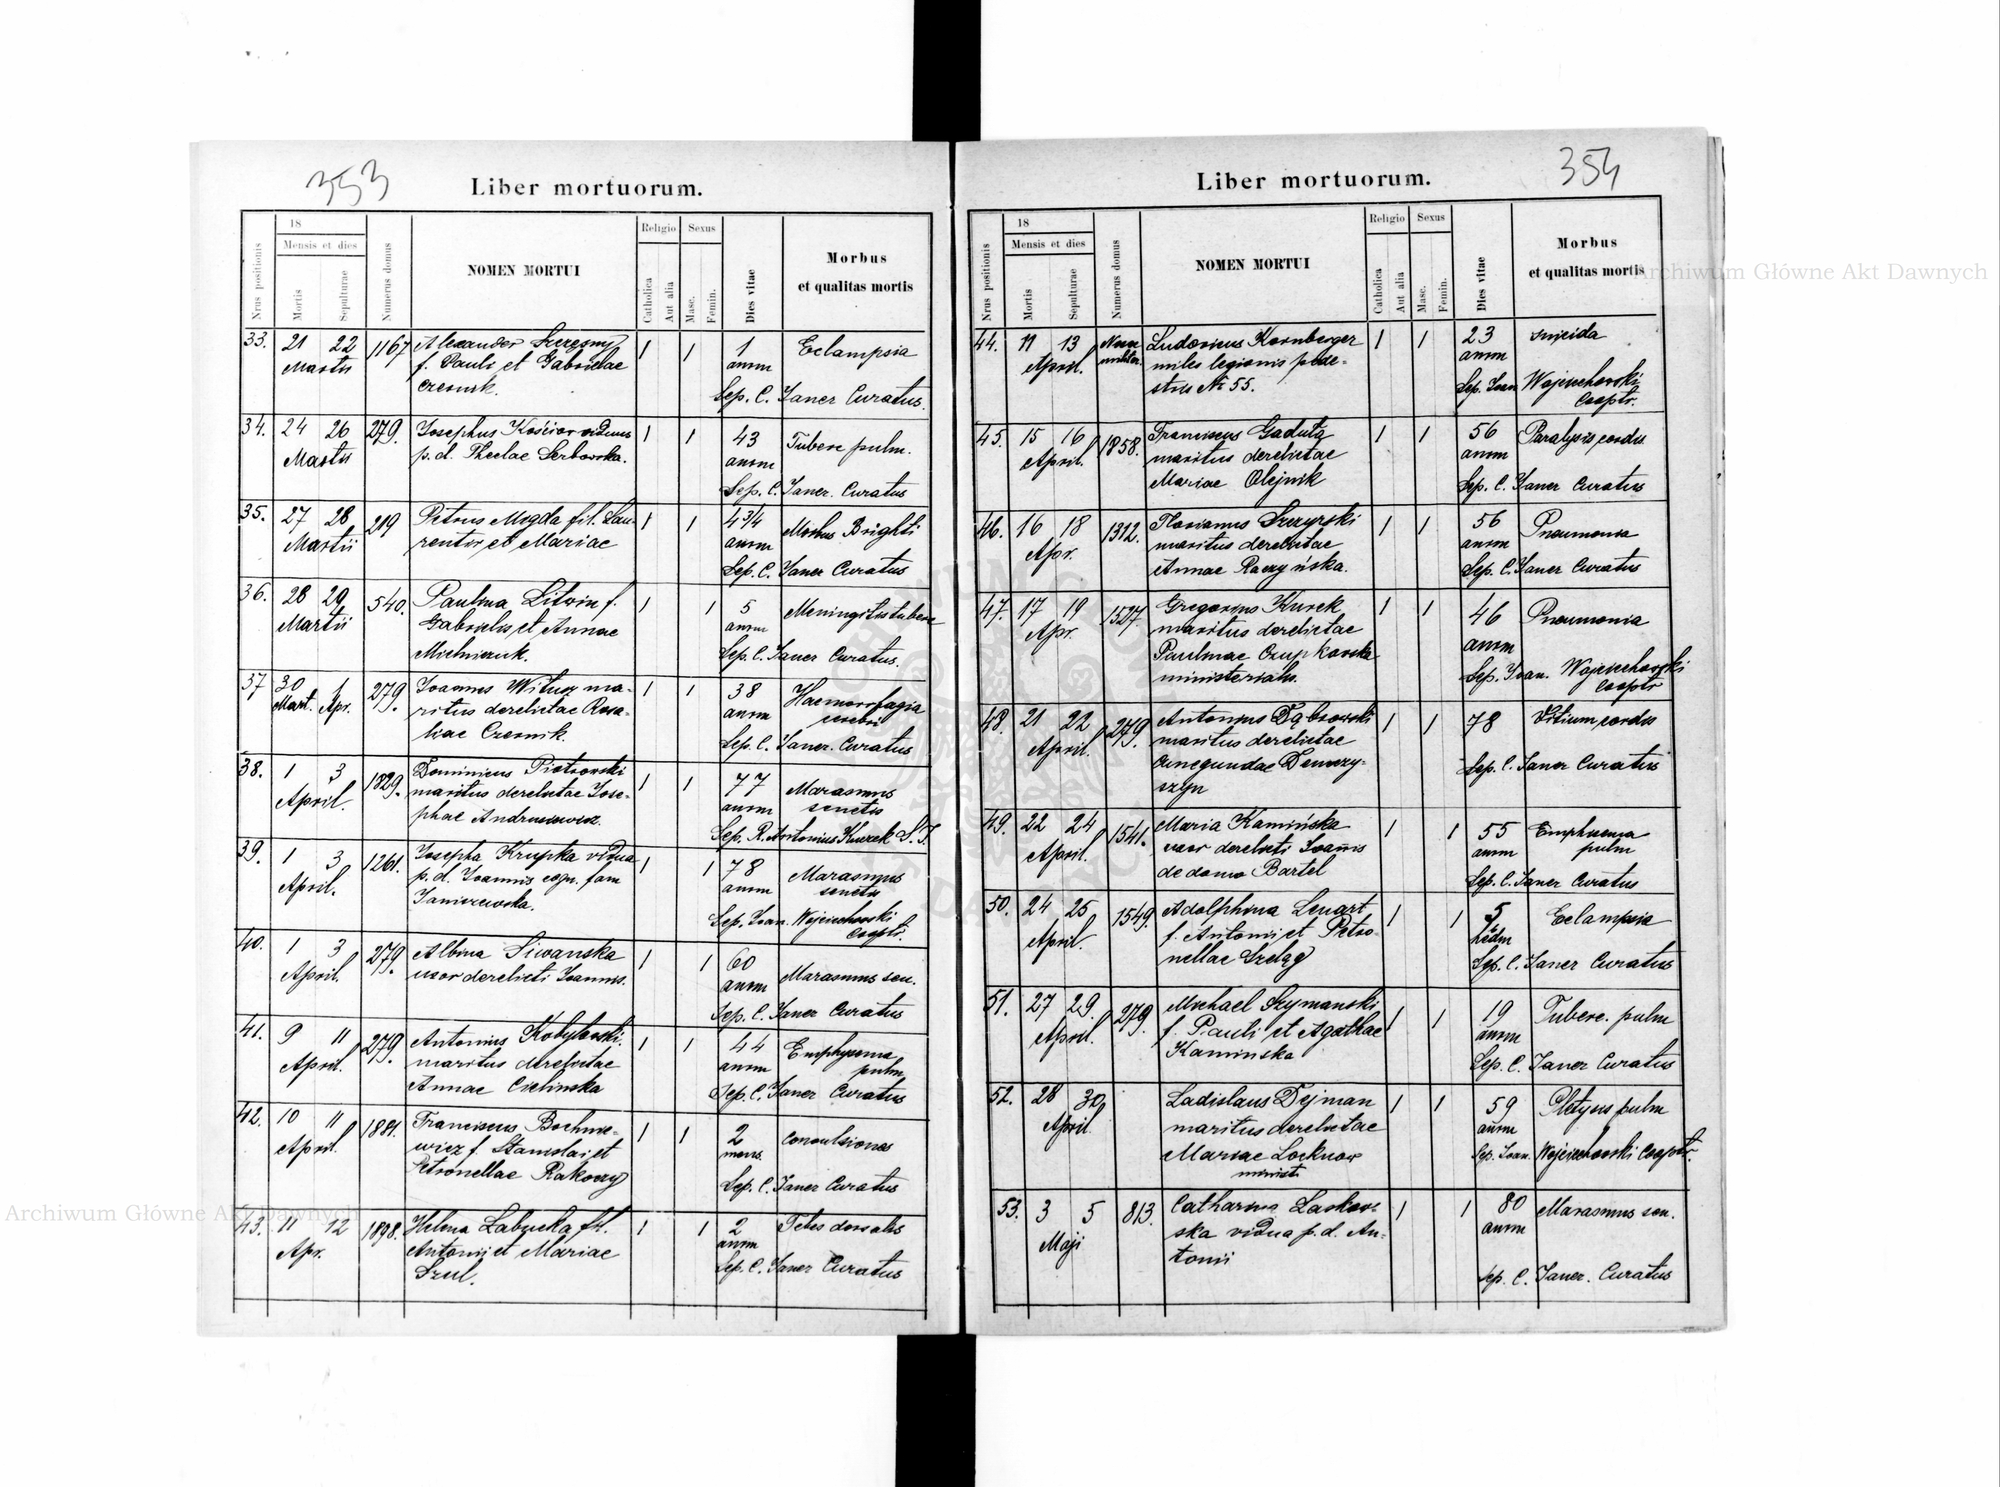 353
Liber mortuorum.
Nrus positionis
18
Mensis et dies
Mortis
Sepulturae
Numerus domus
NOMEN MORTUI
Religio
Catholica
Aut alia
Sexus
Masc.
Femin.
Dies vitae
Morbus
et qualitas mortis
33. 21 22 1167 Alexander Szczęsny 1 1 1 Eclampsia
Martii f. Pauli et Gabrielae annm
Czernik. Sep. C. Janer Curatus.
34. 24 26 279. Josephus Kościów viduus 1 1 43 Tuberc pulm.
Martii p. d. Theclae Serbowska. annm
Sep. C. Janer. Curatus
35. 27 28 219 Petrus Migda fil. Lau- 1 1 4 3/4 Morbus Brighti
Martii rentii et Mariae annm
Sep. C. Janer Curatus
36. 28 29 540. Paulina Litwin f. 1 1 5 Meningitis tuberc
Martii Gabrielis et Annae annm
Mielniczuk. Sep. C. Janer Curatus.
37 30 1 279. Joannes Witusz ma- 1 1 38 Haemorrhagia
Mart. Apr. ritus derelictae Rosa- annm cerebri
liae Czernik. Sep. C. Janer. Curatus
38. 1 3 1829. Dominicus Piotrowski 1 1 77 Marasmus
April. maritus derelictae Jose- annm senetis
phae Andrusiewicz. Sep. R. Antonius Kuzek S. J.
39. 1 3 1261. Josepha Krupka vidua 1 1 78 Marasmus
April. p. d. Joannis cogn. fam annm senetis
Janiszewska. Sep. Joan. Wojciechowski
Cooptr.
40. 1 3 279. Albina Siwanska 1 1 60 Marasmus sen.
April. uxor derelicti Joannis. annm
Sep. C. Janer Curatus
41. 9 11 279. Antonius Kobylarski. 1 1 44 Emphysema
April. maritus derelictae annm pulm
Annae Cielinska Sep. C. Janer Curatus
42. 10 11 1881. Franciscus Bochnie- 1 1 2 Convulsiones
April. wicz f. Stanislai et mens.
Petronellae Rakoczy Sep. C. Janer Curatus
43. 11 12 1898. Helena Labucka fil. 1 1 2 Tebes dorsalis
Apr. Antonii et Mariae annm
Szul. Sep. C. Janer Curatus
354
Liber mortuorum.
Nrus positionis
18
Mensis et dies
Mortis
Sepulturae
Numerus domus
NOMEN MORTUI
Religio
Catholica
Aut alia
Sexus
Masc.
Femin.
Dies vitae
Morbus
et qualitas mortis
44. 11 13 Ludovicus Kornberger 1 1 23 suicida
April. miles legionis pede- annm
stris № 55. Sep. Joan Wojciechowski
Cooptr.
45. 15 16 1858. Franciscus Gaduła 1 1 56 Paralysis cordis
April. maritus derelictae annm
Mariae Olejnik Sep. C. Janer Curatus
46. 16 18 1312. Florianus Szczyrski 1 1 56 Pneumonia
Apr. maritus derelictae annm
Annae Raczyńska. Sep. C. Janer Curatus
47. 17 19 1527. Gregorius Kurek 1 1 46 Pneumonia
Apr. maritus derelictae annm
Paulinae Czupkowska Sep. Joan. Wojciechowski
ministerialis. Cooptr
48. 21 22 279. Antonius Dąbrowski 1 1 78 Vitium cordis
April. maritus derelictae
Cunegundae Demczy- Sep. C. Janer Curatus
szyn
49. 22 24 1541. Maria Kamińska 1 1 55 Emphisema
April. uxor derelicti Joannis annm pulm
de domo Bartel Sep. C. Janer Curatus
50. 24 25 1549. Adolphina Lenart 1 1 5 Eclampsia
April. f. Antonii et Petro- hebdm
nellae Szeląg Sep. C. Janer Curatus
51. 27 29. 279. Michael Szymanski 1 1 19 Tuberc. pulm
April. f. Pauli et Agathae annm
Kaminska Sep. C. Janer Curatus
52. 28 30 Ladislaus Dejman 1 1 59 Phtysis pulm
April maritus derelictae annm
Mariae Locknow Sep. Joan. Wojciechowski Cooptr.
minist.
53. 3 5 813. Catharina Laskow- 1 1 80 Marasmus sen.
Maji ska vidua p. d. An- annm
tonii Sep. C. Janer. Curatus
Archiwum Główne Akt Dawnych
Archiwum Główne Akt Dawnych